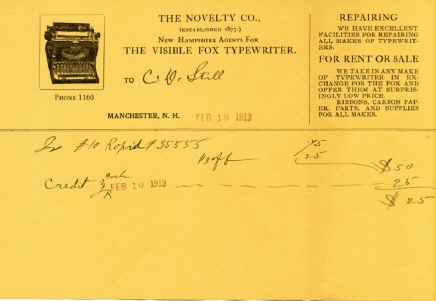 THE NOVELTY CO.,
(ESTABLISHED 1877.)
NEW HAMPSHIRE AGENTS FOR
THE VISIBLE FOX TYPEWRITER.
TO C W Stall
PHONE 1160
MANCHESTER, N. H. FEB 10 1913
REPAIRING
WE HAVE EXCELLENT
FACILITIES FOR REPAIRING
ALL MAKES OF TYPEWRIT-
ERS.
FOR RENT OR SALE
WE TAKE IN ANY MAKE
OF TYPEWRITER IN EX-
CHANGE FOR THE FOX AND
OFFER THEM AT SURPRIS-
INGLY LOW PRICE.
RIBBONS, CARBON PAP-
ER, PARTS, AND SUPPLIES
FOR ALL MAKES.
#10 Rapid #35555 75
⅓ off 25 $50
Credit by Cash FEB 10 1913 25
$25